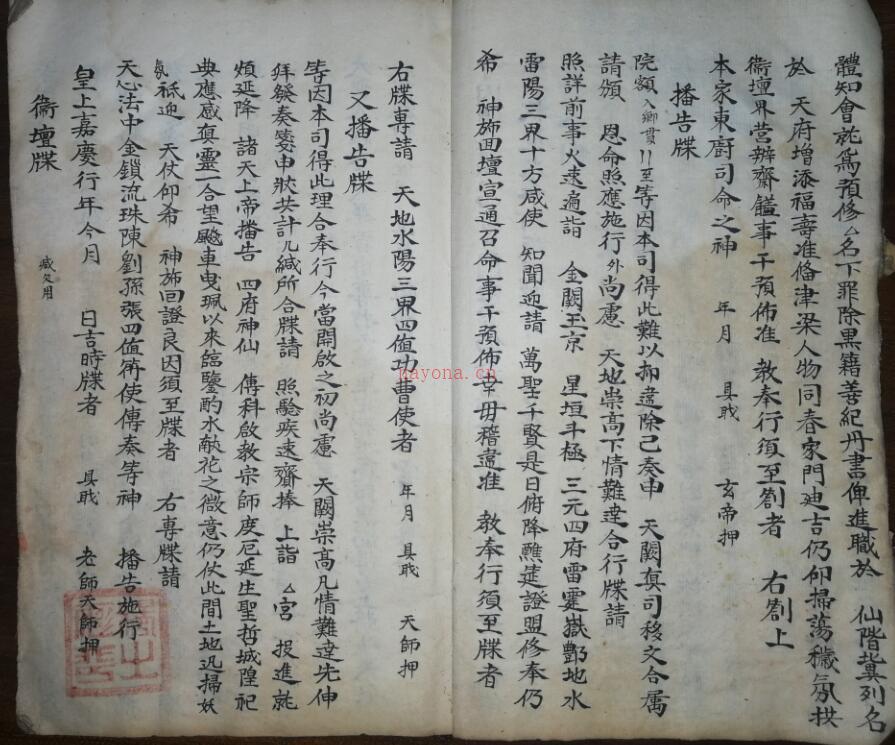 體知會就為預修厶名下罪除黑籍善紀丹書俾進職於 仙階冀列名
於 天府增添福壽准俻津梁人物同春家門迪吉仍仰掃蕩穢氛拱
衞壇界營辦齋饈事干預佈准 教奉行須至劄者 右劄上
本家東廚司命之神 年月 具戝 玄帝押
播告牒
院額 入鄉貫 至等因本司得此難以抑違除已奏申 天闕真司移文合属
請頒 恩命照應施行外尚慮 天地崇高下情難達合行牒請
照詳前事火速遍詣 金闕玉京 星垣斗極 三元四府雷霆嶽酆地水
雷陽三界十方咸使 知聞迎請 萬聖千賢是日俯降醮筵證盟修奉仍
希 神旆回壇宣通召命事干預佈幸毋稽違准 教奉行須至牒者
右牒專請 天地水陽三界四值功曹使者 年月 具戝 天師押
又播告牒
等因本司得此理合奉行今當開啟之初尚慮 天闕崇高凡情難達先伸
拜發奏箋申狀共計几緘所合牒請 照驗疾速賫捧 上詣 厶宮 投進就
煩延降 諸天上帝播告 四府神仙 傳科啟教宗師度厄延生聖哲城隍祀
典應感真靈一合望飈車曳珮以来臨鑒酌水献花之微意仍仗此間土地迅掃妖
氛祗迎 天仗仰希 神旆回證良因須至牒者 右專牒請
天心法中金鎖流珠陳劉孫張四值符使傳奏等神 播告施行
皇上嘉慶行年今月 日吉時牒者 具戝 老師天師押
衞壇牒
nayona.cn